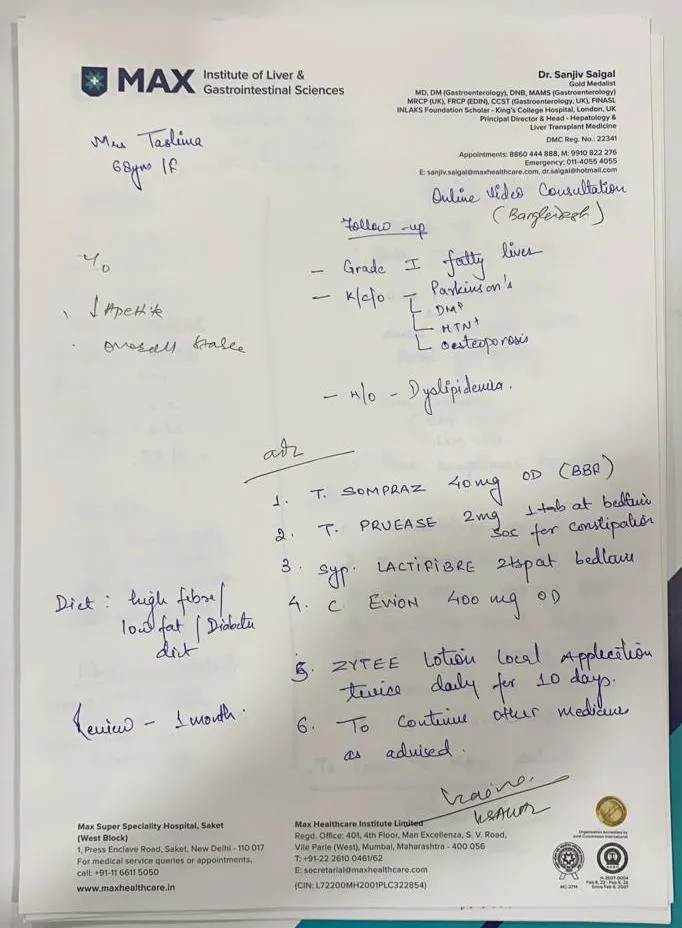 MAX Institute of Liver &
Gastrointestinal Sciences
Dr. Sanjiv Saigal
Gold Medalist
MD, DM (Gastroenterology), DNB, MAMS (Gastroenterology)
MRCP (UK), FRCP (EDIN), CCST (Gastroenterology, UK), FINASL
INLAKS Foundation Scholar - King's College Hospital, London, UK
Principal Director & Head - Hepatology &
Liver Transplant Medicine
DMC Reg. No.: 22341
Appointments: 8860 444 888, M: 9910 822 276
Emergency: 011-4055 4055
E: sanjiv.saigal@maxhealthcare.com, dr.saigal@hotmail.com
Mrs Taslima
68yrs /F
Online Video Consultation
(Bangladesh)
Follow-up
- Grade I fatty liver
- K/c/o - Parkinson's
DM+
HTN+
Oesteoporosis
- H/O - Dyslipidemia.
↓ Apetite
overall stable
adv
1. T. SOMPRAZ 40mg OD (BBF)
2. T. PRUEASE 2mg 1 tab at bedtime
SOC for constipation
3. Syp. LACTIFIBRE 2tsp at bedtime
4. C. EVION 400 mg OD
5. ZYTEE Lotion Local Application
twice daily for 10 days.
6. To Continue other medicines
as advised.
Diet: high fibre/
low fat / Diabetic
diet
Review - 1 month.
Max Super Speciality Hospital, Saket
(West Block)
1, Press Enclave Road, Saket, New Delhi - 110 017
For medical service queries or appointments,
call: +91-11 6611 5050
www.maxhealthcare.in
Max Healthcare Institute Limited
Regd. Office: 401, 4th Floor, Man Excellenza, S. V. Road,
Vile Parle (West), Mumbai, Maharashtra - 400 056
T: +91-22 2610 0461/62
E: secretarial@maxhealthcare.com
(CIN: L72200MH2001PLC322854)
Organization Accredited by
Joint Commission International